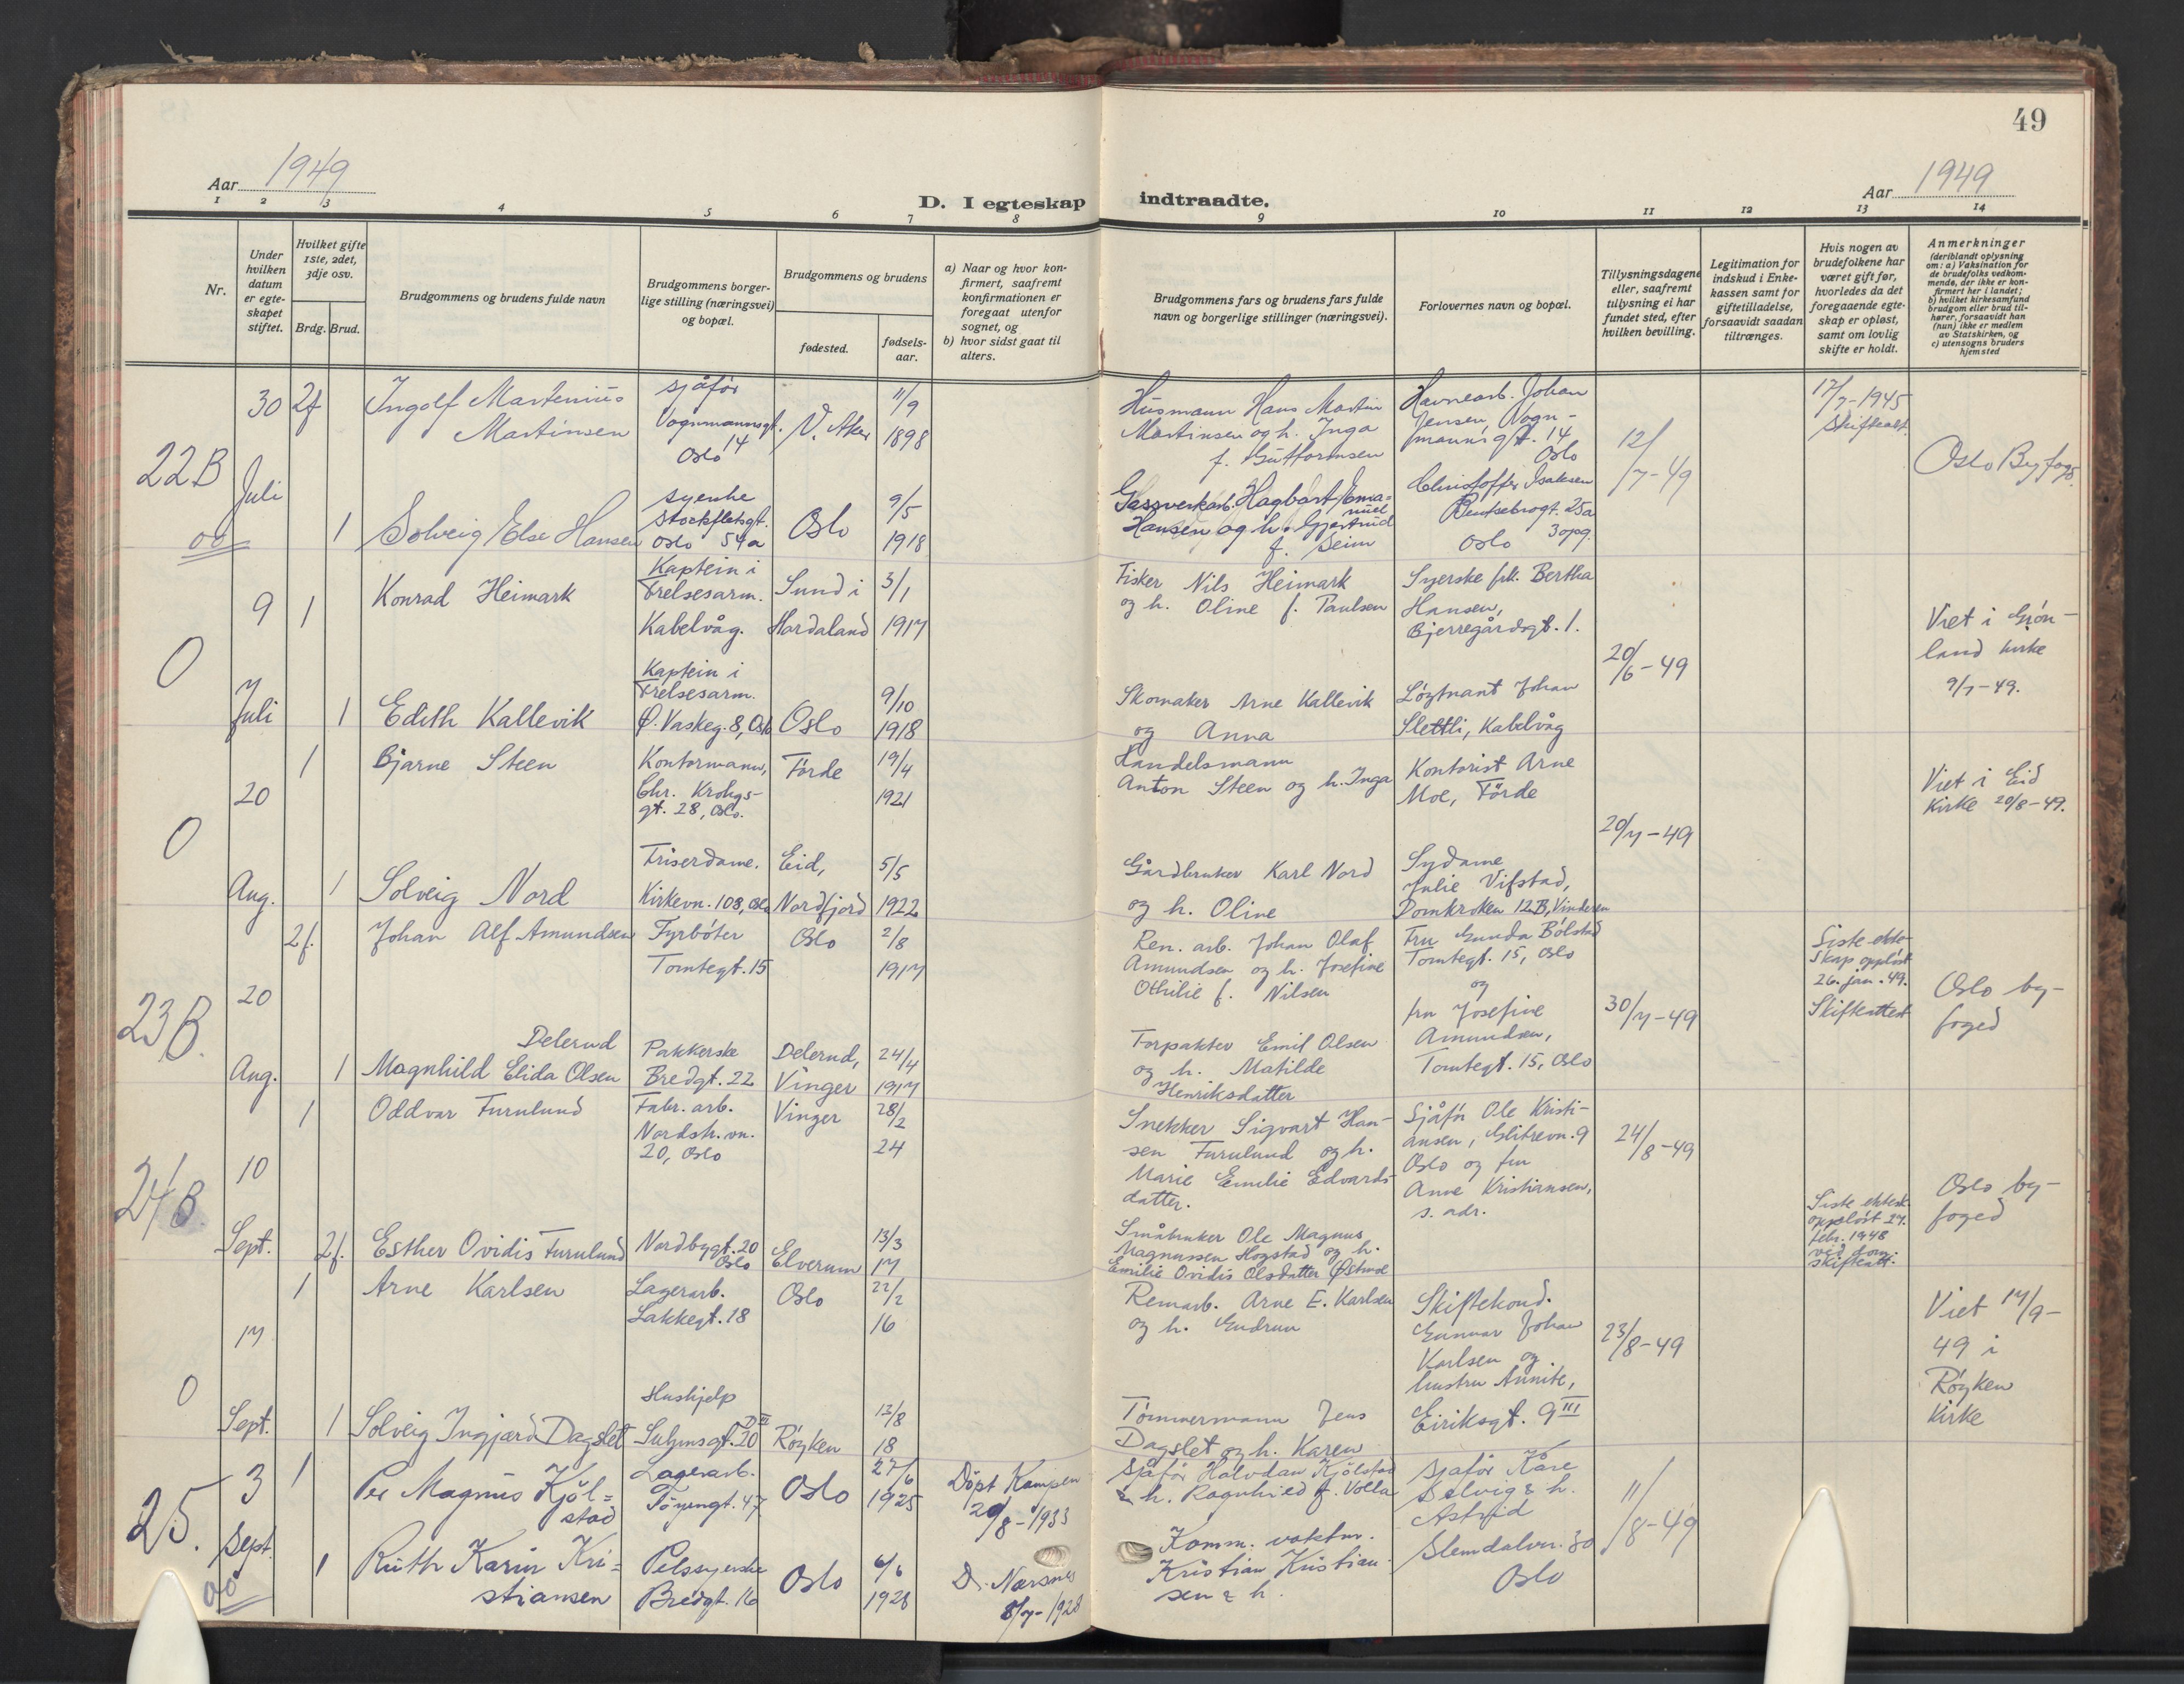 49
Aar 1949
D. I egteskap indtraadte.
Aar 1949
1 2 3 4 5 6 7 8 9 10 11 12 13 14
Nr.
Under hvilken datum er egteskapet stiftet.
Hvilket gifte 1ste, 2det, 3dje osv.
Brdg. Brud.
Brudgommens og brudens fulde navn
Brudgommens borgerlige stilling (næringsvei) og bopæl.
Brudgommens og brudens
fødested.
fødselsaar.
a) Naar og hvor konfirmert, saafremt konfirmationen er foregaat utenfor sognet, og
b) hvor sidst gaat til alters.
Brudgommens fars og brudens fars fulde navn og borgerlige stillinger (næringsvei).
Forlovernes navn og bopæl.
Tillysningsdagene eller, saafremt tillysning ei har fundet sted, efter hvilken bevilling.
Legitimation for indskud i Enkekassen samt for giftetilladelse, forsaavidt saadan tiltrænges.
Hvis nogen av brudefolkene har været gift før, hvorledes da det foregaaende egteskap er opløst, samt om lovlig skifte er holdt.
Anmerkninger (deriblandt oplysning om: a) Vaksination for de brudefolks vedkommende, der ikke er konfirmert her i landet; b) hvilket kirkesamfund brudgom eller brud tilhører, forsaavidt han (hun) ikke er medlem av Statskirken, og c) utensogns bruders hjemsted
22B
30 Juli
2f
Ingolf Martenius Martinsen
sjåfør Vognmannsgt. 14 Oslo
V. Aker
11/9 1898
Husmann Hans Martin Martinsen og h. Inga f. Guttormsen
Havnearb. Johan Jensen, Vognmannsgt. 14 Oslo
12/7-49
17/7-1945 Skifteatt.
Oslo Byfogd
1
Solveig Else Hansen
syerske Stockfletsgt. 54a Oslo
Oslo
9/5 1918
Gassverkarb. Hagbart Emanuel Hansen og h. Gjertrud f. Seim
Christoffer Isaksen Bentsebrogt. 25a 3 opg. Oslo
0
9 Juli
1
Konrad Heimark
Kaptein i Frelsesarm. Kabelvåg.
Sund i Hordaland
3/1 1917
Fisker Nils Heimark og h. Oline f. Paulsen
Syerske frk. Bertha Hansen, Bjerregårdsgt. 1.
20/6-49
Viet i Grønland kirke 9/7-49.
1
Edith Kallevik
Kaptein i Frelsesarm. Ø. Vaskeg. 8, Oslo
Oslo
9/10 1918
Skomaker Arne Kallevik og Anna
Løytnant Johan Slettli, Kabelvåg
0
20 Aug.
1
Bjarne Steen
Kontormann, Chr. Krohgsgt. 28, Oslo.
Førde
19/4 1921
Handelsmann Anton Steen og h. Inga
Kontorist Arne Moe, Førde
20/7-49
Viet i Eid kirke 20/8-49.
1
Solveig Nord
Friserdame. Kirkevn. 108, Oslo
Eid, Nordfjord
5/5 1922
Gårdbruker Karl Nord og h. Oline
Sydame Julie Vifstad, Domkroken 12B, Vinderen
23B.
20 Aug.
2f.
Johan Alf Amundsen
Fyrbøter Tomtegt. 15
Oslo
2/8 1917
Ren. arb. Johan Olaf Amundsen og h. Josefine Othilie f. Nilsen
Fru Gunda Bølstad Tomtegt. 15, Oslo og fru Josefine Amundsen, Tomtegt. 15, Oslo
30/7-49
Siste ekteskap oppløst 26. jan. 49. Skifteattest
Oslo byfoged
1
Magnhild Elida Olsen Delerud
Pakkerske Bredgt. 22
Delerud, Vinger
24/4 1917
Forpakter Emil Olsen og h. Matilde Henriksdatter
24B.
10 Sept.
1
Oddvar Furulund
Fabr. arb. Nordstr. vn. 20, Oslo
Vinger
28/2 24
Snekker Sigvart Hansen Furulund og h. Marie Emilie Edvardsdatter.
Sjåfør Ole Kristiansen, Glitrevn. 9 Oslo og fru Anne Kristiansen, s. adr.
24/8-49
Oslo byfoged
2f.
Esther Ovidis Furulund
Nordbygt. 20 Oslo
Elverum
13/3 17
Småbruker Ole Magnus Magnussen Hogstad og h. Emilie Ovidis Olsdatter
Siste ektesk. oppløst 27. febr. 1948 ved dom. skifteatt.
0
17 Sept.
1
Arne Karlsen
Lagerarb. Lakkegt. 18
Oslo
22/2 16
Remarb. Arne E. Karlsen og h. Gudrun
Skiftekond. Gunnar Johan Karlsen og hustru Annite, Eiriksgt. 9 III
23/8-49
Viet 17/9-49 i Røyken kirke
1
Solveig Ingjerd Dagslet
Hushjelp
Røyken
13/8 18
Tømmermann Jens Dagslet og h. Karen
25.
3 Sept.
1
Per Magnus Kjølstad
Lagerarb. Tøyengt. 47
Oslo
27/6 1925
Døpt Kampen 20/8-1933
Sjåfør Halvdan Kjølstad & h. Ragnhild f. Volla
Sjåfør Kåre Solvig & h. Astrid Slemdalvn. 30 Oslo
11/8-49
1
Ruth Karin Kristiansen
Pelssyerske Bredgt. 16
Oslo
6/6 1928
D. Nærsnes 8/7-1928
Komm. vaktm. Kristian Kristiansen & h.